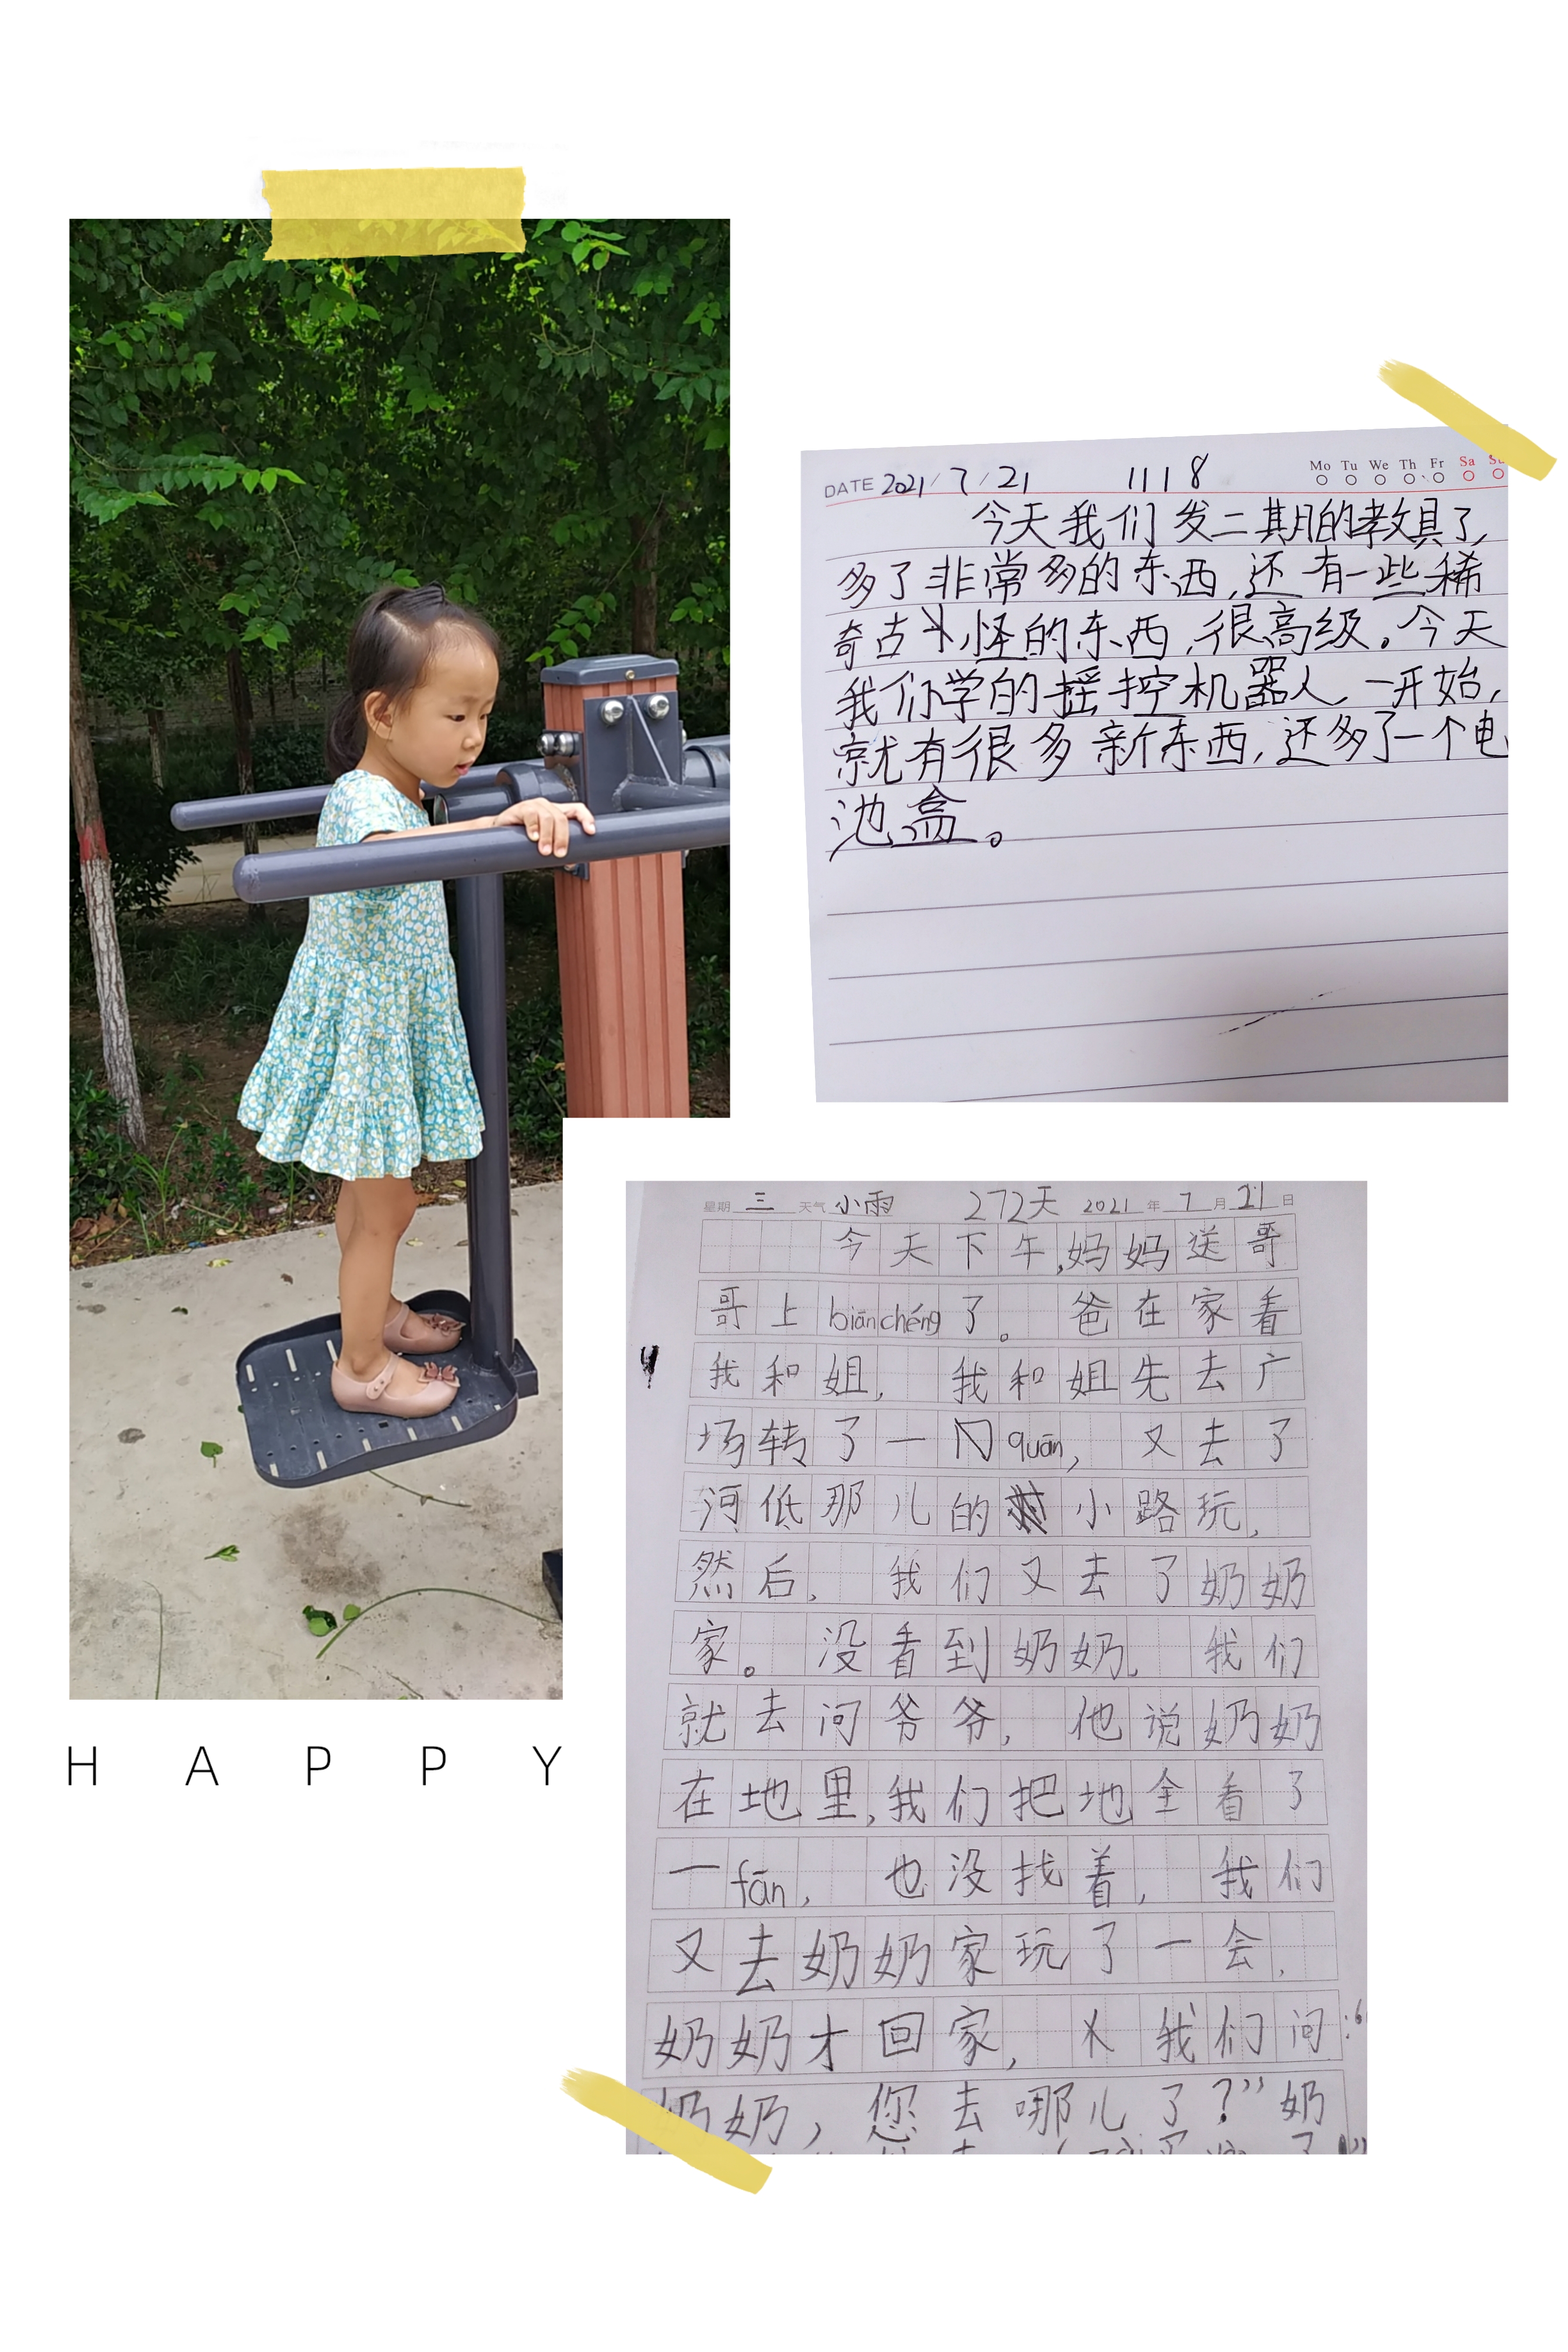 DATE 2021/7/21 1118 Mo Tu We Th Fr Sa Su
今天我们发二期的教具了,
多了非常多的东西,还有一些稀
奇古怪的东西,很高级。今天
我们学的摇控机器人,一开始,
就有很多新东西,还多了一个电
池盒。
星期三 天气小雨 272天 2021年7月21日
今天下午,妈妈送哥
哥上biānchéng了。爸在家看
我和姐,我和姐先去广
场转了一quān,又去了
河低那儿的小路玩,
然后,我们又去了奶奶
家。没看到奶奶,我们
就去问爷爷,他说奶奶
在地里,我们把地全看了
一fān,也没找着,我们
又去奶奶家玩了一会,
奶奶才回家,我们问:“
奶奶,您去哪儿了?”奶
HAPPY